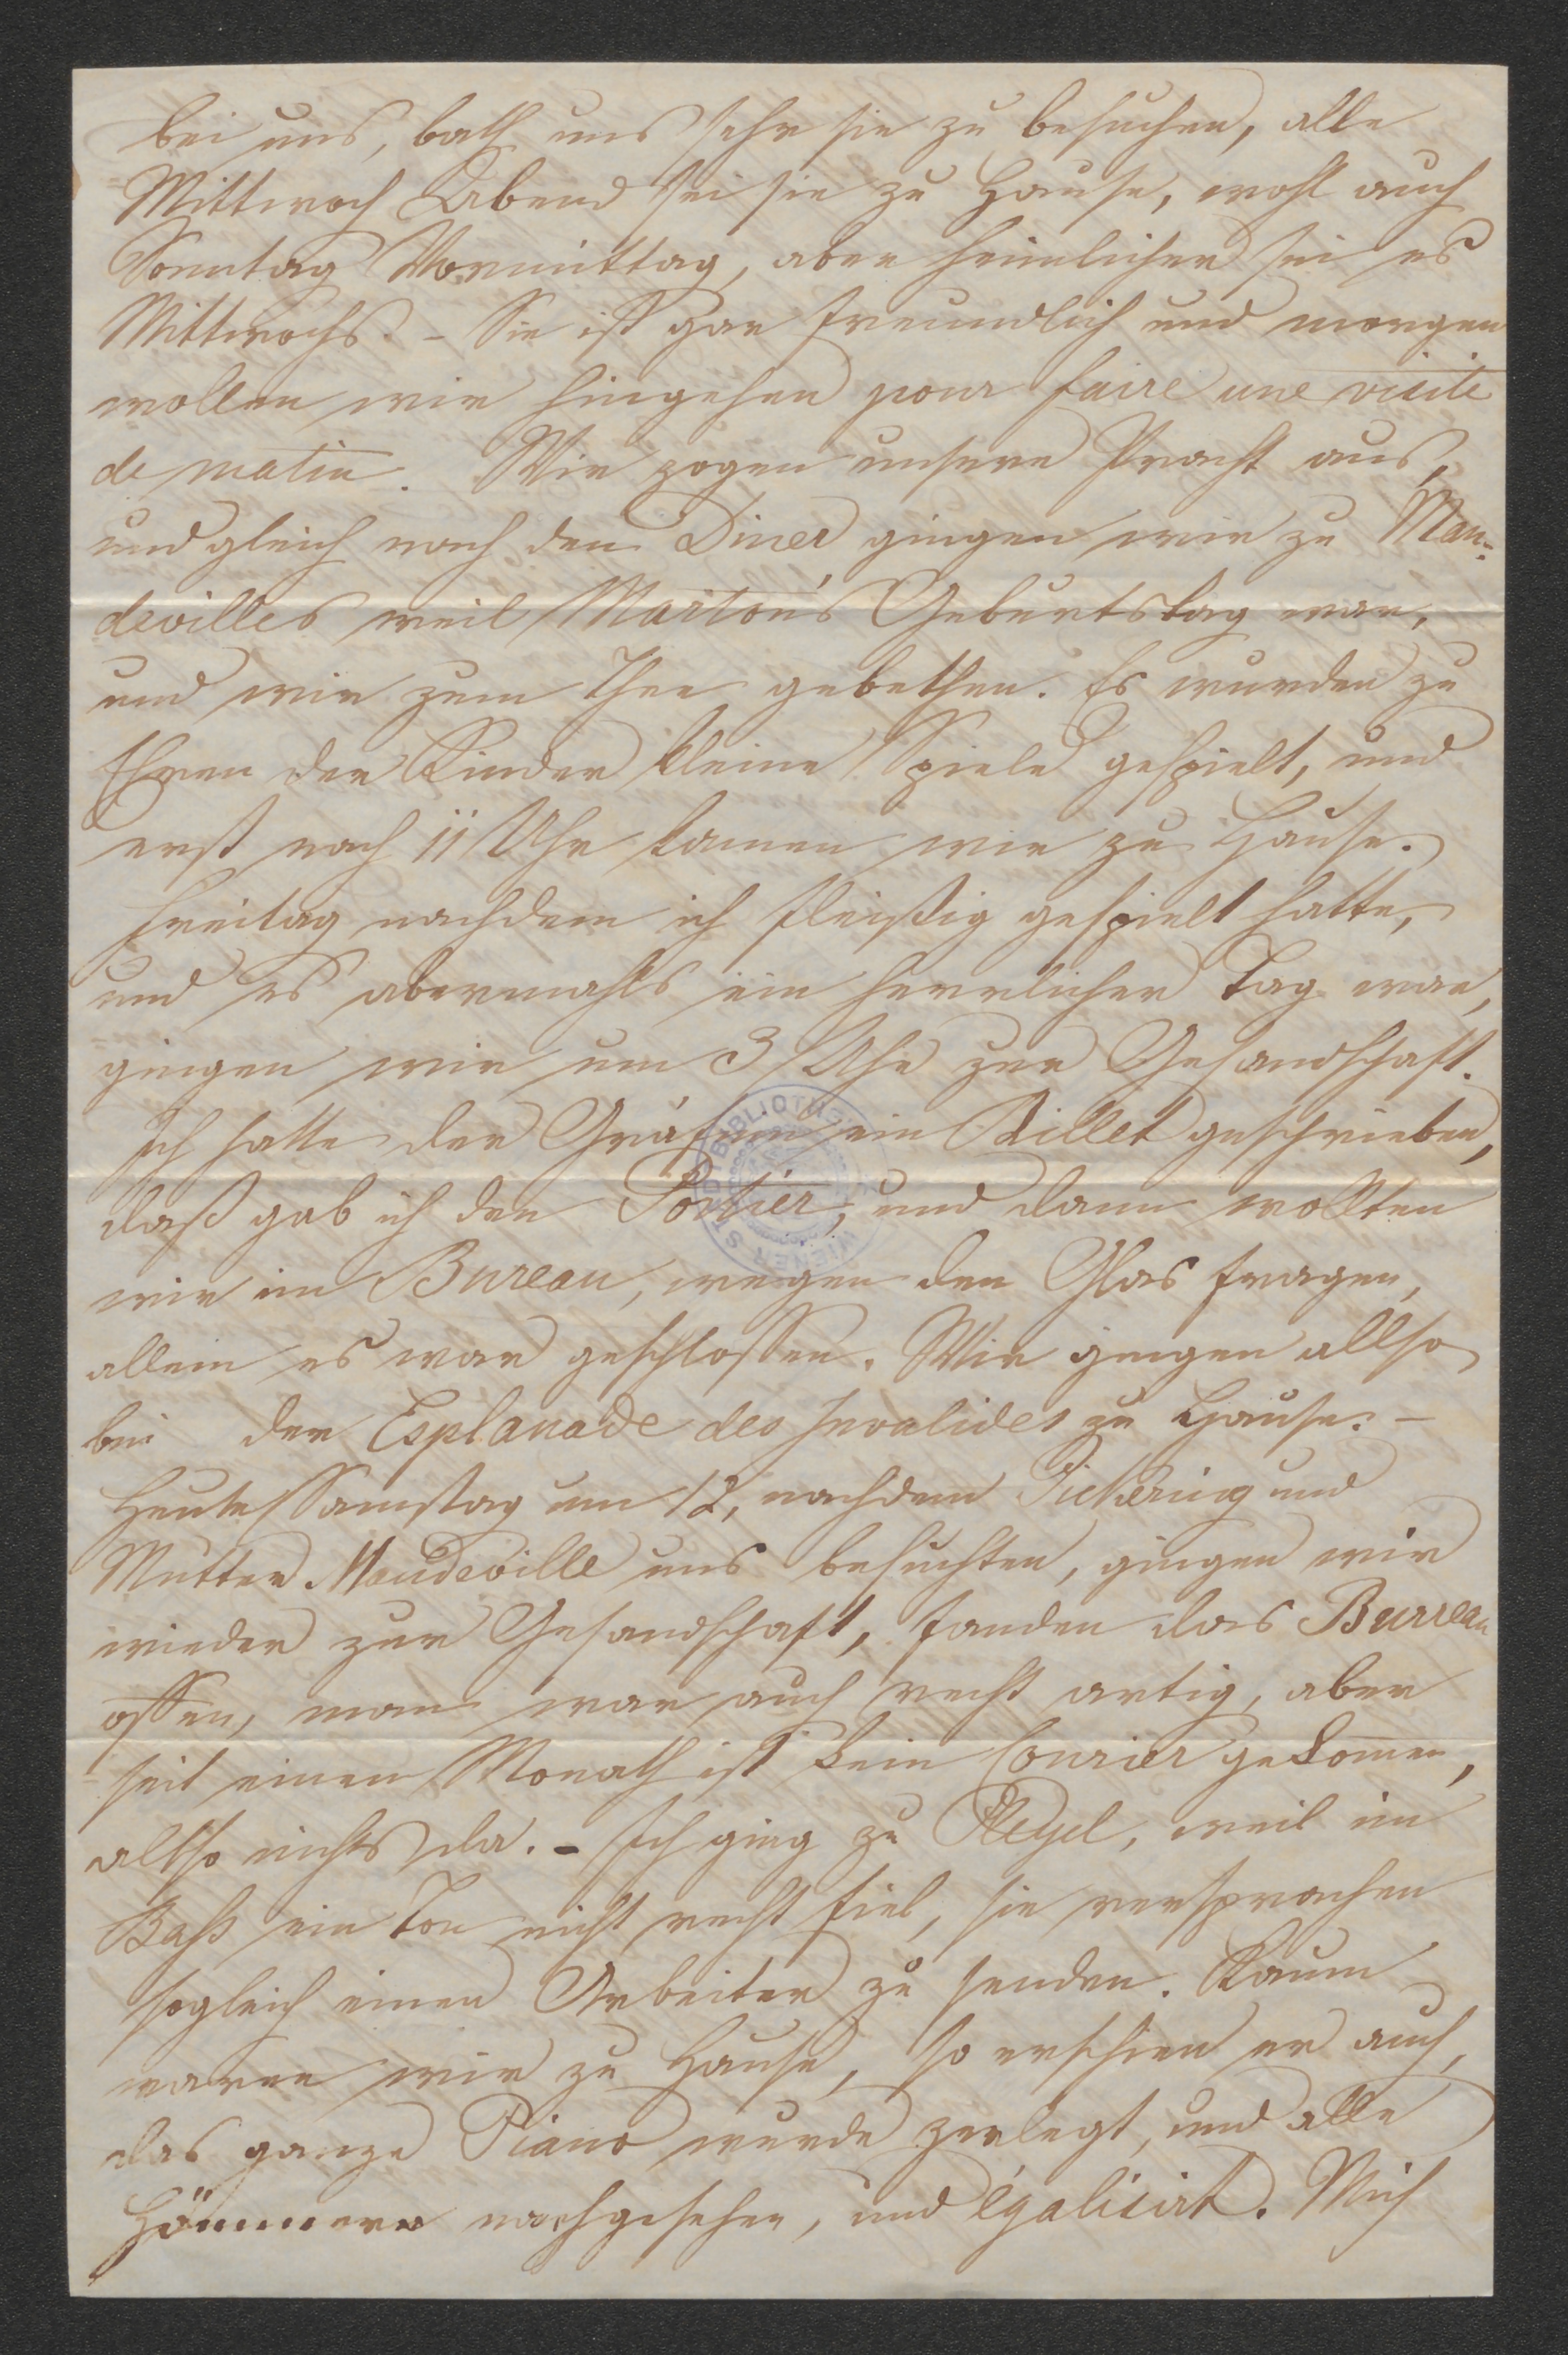 bei uns, bath uns sehr sie zu besuchen, alle
Mittwoch Abend sei sie zu Hause, wohl auch
Sonntag Vormittag, aber heimlicher sei es
Mittwochs. – Sie ist gar freundlich und morgen
wollen wir hingehen pour faire une visite
de matin. Wir zogen unsere Pracht aus,
und gleich nach den Diner gingen wir zu Man-
devilles weil Marton's Geburtstag war,
und wir zum Thee gebethen. Es wurden zu
Ehren der Kinder kleine Spiele gespielt, und
erst nach 11 Uhr kamen wir zu Hause.
Freitag nachdem ich fleißig gespielt hatte,
und es abermahls ein herrlicher Tag war,
gingen wir um 3 Uhr zur Gesandschaft.
Ich hatte der Gräfinn ein Billet geschrieben,
daß gab ich den Portier, und dann wollten
wir im Bureau, wegen den Glas fragen,
allein es war geschlossen. Wir gingen allso
bei der Esplanade des Invalides zu Hause. –
Heute Samstag um 12, nachdem Pickering und
Mutter Mandeville uns besuchten, gingen wir
wieder zur Gesandschaft, fanden das Burreau
offen, man war auch recht artig, aber
seit einen Monath ist kein Courier gekommen,
allso nichts da. – Ich ging zu Pleyel, weil im
Baß ein Ton nicht recht fiel, sie versprachen
sogleich einen Arbeiter zu senden. Kaum
waren wir zu Hause, so erschien er auch,
das ganze Piano wurde zerlegt, und alle
Hämmern nachgesehen, und égalisirt. Mich
WIENER STADTBIBLIOTHEK